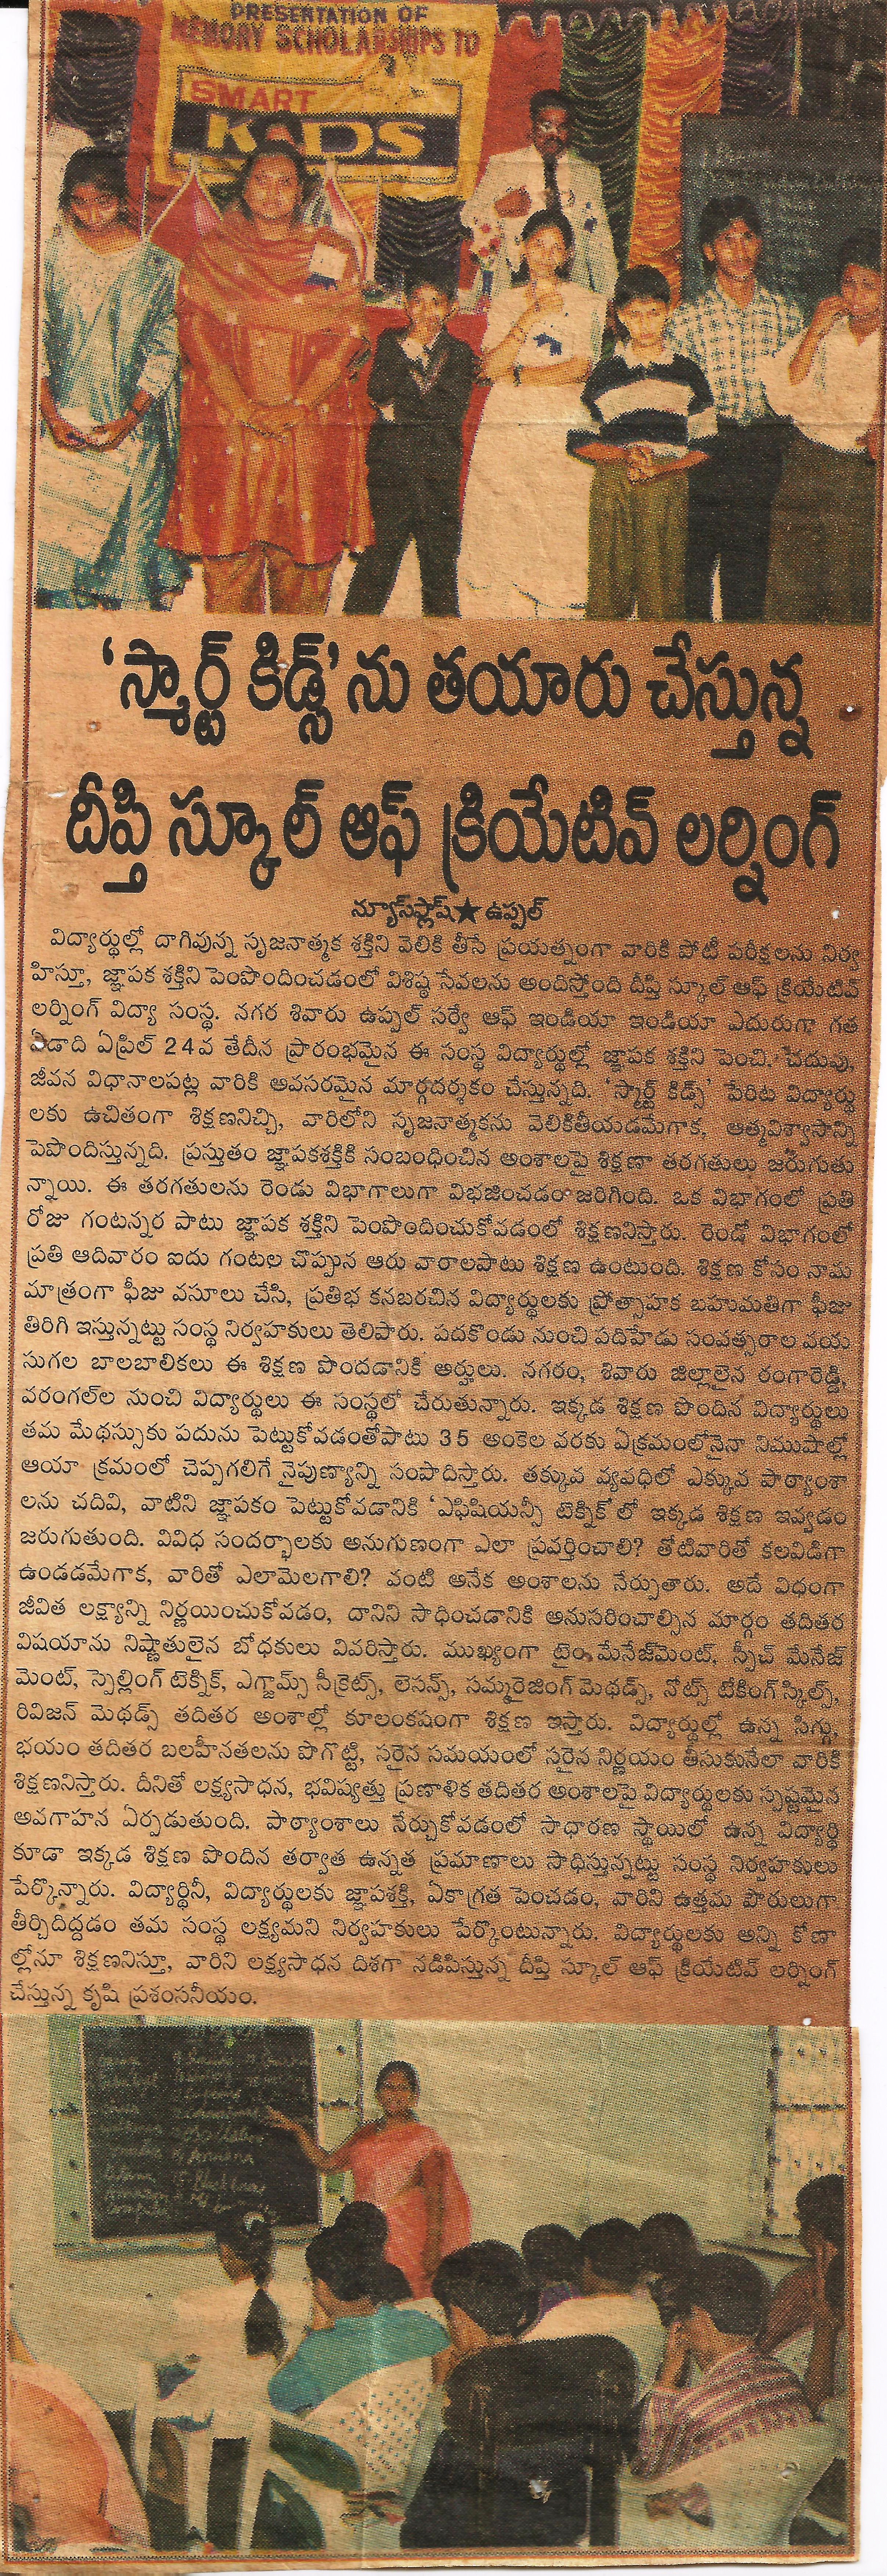 PRESENTATION OF
MEMORY SCHOLARSHIPS TO
SMART
KIDS
‘స్మార్ట్ కిడ్స్’ను తయారు చేస్తున్న
దీప్తి స్కూల్ ఆఫ్ క్రియేటివ్ లర్నింగ్
న్యూస్‌ఫ్లాష్★ఉప్పల్
విద్యార్థుల్లో దాగివున్న సృజనాత్మక శక్తిని వెలికి తీసే ప్రయత్నంగా వారికి పోటీ పరీక్షలను నిర్వ
హిస్తూ, జ్ఞాపక శక్తిని పెంపొందించడంలో విశిష్ఠ సేవలను అందిస్తోంది దీప్తి స్కూల్ ఆఫ్ క్రియేటివ్
లర్నింగ్ విద్యా సంస్థ. నగర శివారు ఉప్పల్ సర్వే ఆఫ్ ఇండియా ఇండియా ఎదురుగా గత
ఏడాది ఏప్రిల్ 24వ తేదీన ప్రారంభమైన ఈ సంస్థ విద్యార్థుల్లో జ్ఞాపక శక్తిని పెంచి. చదువు,
జీవన విధానాలపట్ల వారికి అవసరమైన మార్గదర్శకం చేస్తున్నది. ‘స్మార్ట్ కిడ్స్’ పేరిట విద్యార్థు
లకు ఉచితంగా శిక్షణనిచ్చి, వారిలోని సృజనాత్మకను వెలికితీయడమేగాక, ఆత్మవిశ్వాసాన్ని
పెపొందిస్తున్నది. ప్రస్తుతం జ్ఞాపకశక్తికి సంబంధించిన అంశాలపై శిక్షణా తరగతులు జరుగుతు
న్నాయి. ఈ తరగతులను రెండు విభాగాలుగా విభజించడం జరిగింది. ఒక విభాగంలో ప్రతి
రోజు గంటన్నర పాటు జ్ఞాపక శక్తిని పెంపొందించుకోవడంలో శిక్షణనిస్తారు. రెండో విభాగంలో
ప్రతి ఆదివారం ఐదు గంటల చొప్పున ఆరు వారాలపాటు శిక్షణ ఉంటుంది. శిక్షణ కోసం నామ
మాత్రంగా ఫీజు వసూలు చేసి, ప్రతిభ కనబరచిన విద్యార్థులకు ప్రోత్సాహక బహుమతిగా ఫీజు
తిరిగి ఇస్తున్నట్టు సంస్థ నిర్వహకులు తెలిపారు. పదకొండు నుంచి పదిహేడు సంవత్సరాల వయ
సుగల బాలబాలికలు ఈ శిక్షణ పొందడానికి అర్హులు. నగరం, శివారు జిల్లాలైన రంగారెడ్డి,
వరంగల్‌ల నుంచి విద్యార్థులు ఈ సంస్థలో చేరుతున్నారు. ఇక్కడ శిక్షణ పొందిన విద్యార్థులు
తమ మేథస్సుకు పదును పెట్టుకోవడంతోపాటు 35 అంకెల వరకు ఏక్రమంలోనైనా నిముషాల్లో
ఆయా క్రమంలో చెప్పగలిగే నైపుణ్యాన్ని సంపాదిస్తారు. తక్కువ వ్యవధిలో ఎక్కువ పాఠ్యాంశా
లను చదివి, వాటిని జ్ఞాపకం పెట్టుకోవడానికి ‘ఎఫిషియన్సీ టెక్నిక్’లో ఇక్కడ శిక్షణ ఇవ్వడం
జరుగుతుంది. వివిధ సందర్భాలకు అనుగుణంగా ఎలా ప్రవర్తించాలి? తోటివారితో కలవిడిగా
ఉండడమేగాక, వారితో ఎలామెలగాలి? వంటి అనేక అంశాలను నేర్పుతారు. అదే విధంగా
జీవిత లక్ష్యాన్ని నిర్ణయించుకోవడం, దానిని సాధించడానికి అనుసరించాల్సిన మార్గం తదితర
విషయాను నిష్ణాతులైన బోధకులు వివరిస్తారు. ముఖ్యంగా టైం మేనేజ్‌మెంట్, స్పీచ్ మేనేజ్
మెంట్, స్పెల్లింగ్ టెక్నిక్, ఎగ్జామ్స్ సీక్రెట్స్, లెసన్స్, సమ్మరైజింగ్ మెథడ్స్, నోట్స్ టేకింగ్ స్కిల్స్,
రివిజన్ మెథడ్స్ తదితర అంశాల్లో కూలంకషంగా శిక్షణ ఇస్తారు. విద్యార్థుల్లో ఉన్న సిగ్గు,
భయం తదితర బలహీనతలను పొగొట్టి, సరైన సమయంలో సరైన నిర్ణయం తీసుకునేలా వారికి
శిక్షణనిస్తారు. దీనితో లక్ష్యసాధన, భవిష్యత్తు ప్రణాళిక తదితర అంశాలపై విద్యార్థులకు స్పష్టమైన
అవగాహన ఏర్పడుతుంది. పాఠ్యాంశాలు నేర్చుకోవడంలో సాధారణ స్థాయిలో ఉన్న విద్యార్థి
కూడా ఇక్కడ శిక్షణ పొందిన తర్వాత ఉన్నత ప్రమాణాలు సాధిస్తున్నట్టు సంస్థ నిర్వహకులు
పేర్కొన్నారు. విద్యార్థినీ, విద్యార్థులకు జ్ఞాపశక్తి, ఏకాగ్రత పెంచడం, వారిని ఉత్తమ పౌరులుగా
తీర్చిదిద్దడం తమ సంస్థ లక్ష్యమని నిర్వహకులు పేర్కొంటున్నారు. విద్యార్థులకు అన్ని కోణా
ల్లోనూ శిక్షణనిస్తూ, వారిని లక్ష్యసాధన దిశగా నడిపిస్తున్న దీప్తి స్కూల్ ఆఫ్ క్రియేటివ్ లర్నింగ్
చేస్తున్న కృషి ప్రశంసనీయం.